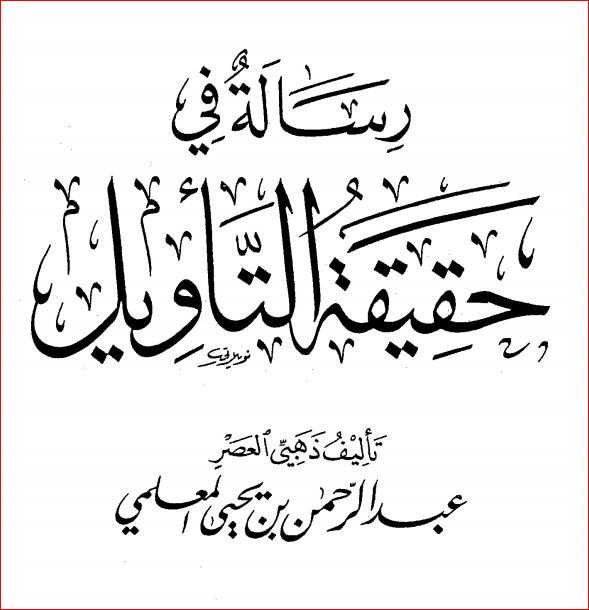 رِسَالَةٌ فِي
حَقِيقَةُ التَّأْوِيل
تَأْلِيْفُ ذَهَبِيِّ العَصْرِ
عبد الرّحمٰن بن يحيى المعلمي